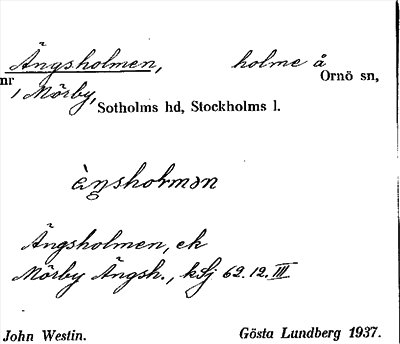 Ängsholmen, holme å Ornö sn,
nr 1 Mörby, Sotholms hd, Stockholms l.
Ängsholmen, ek
Mörby Ängsh., kSj 62.12.III
John Westin. Gösta Lundberg 1937.